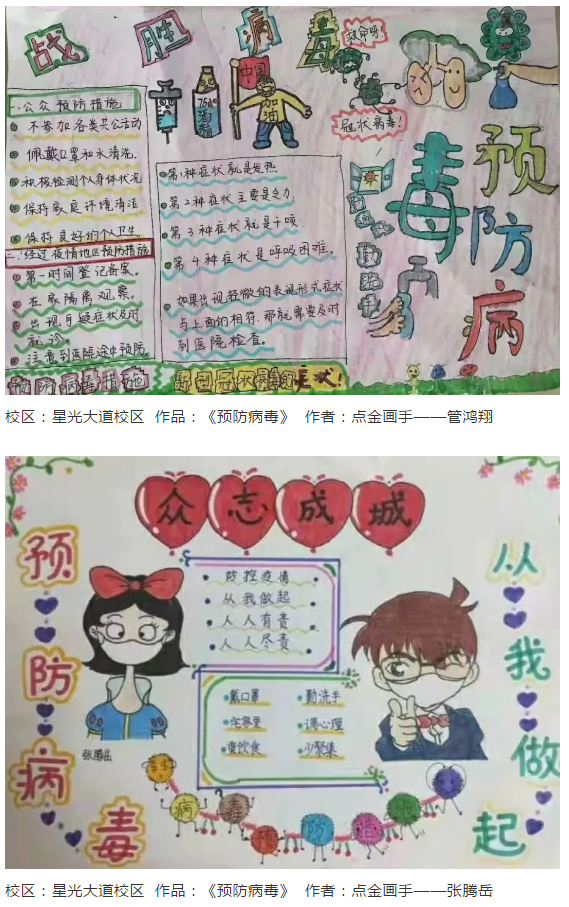 战 胜 病 毒
救命呀!
中国
加油
75%
酒精
冠状病毒!
预防病毒
勤洗手
一.公众预防措施
不参加各类公共活动
佩戴口罩和水清洗.
积极检测个人身体状况
保持家庭环境清洁
保持良好的个人卫生
二.经过疫情地区预防措施
第一时间登记备案.
在家隔离观察.
出现可疑症状及时
就诊.
注意到医院途中预防.
第1种症状就是发热
第2种症状主要是乏力
第3种症状就是干咳
第4种症状是呼吸困难.
如果出现轻微的表现形式症状
与上面的相符.那就需要及时
到医院检查.
预防病毒措施
新型冠状病毒的症状!
校区：星光大道校区 作品：《预防病毒》 作者：点金画手——管鸿翔
众志成城
预防病毒
从我做起
防控疫情
从我做起
人人有责
人人尽责
戴口罩
勤洗手
宅家里
调心理
重饮食
少聚集
张腾岳
病 毒 预 防
校区：星光大道校区 作品：《预防病毒》 作者：点金画手——张腾岳